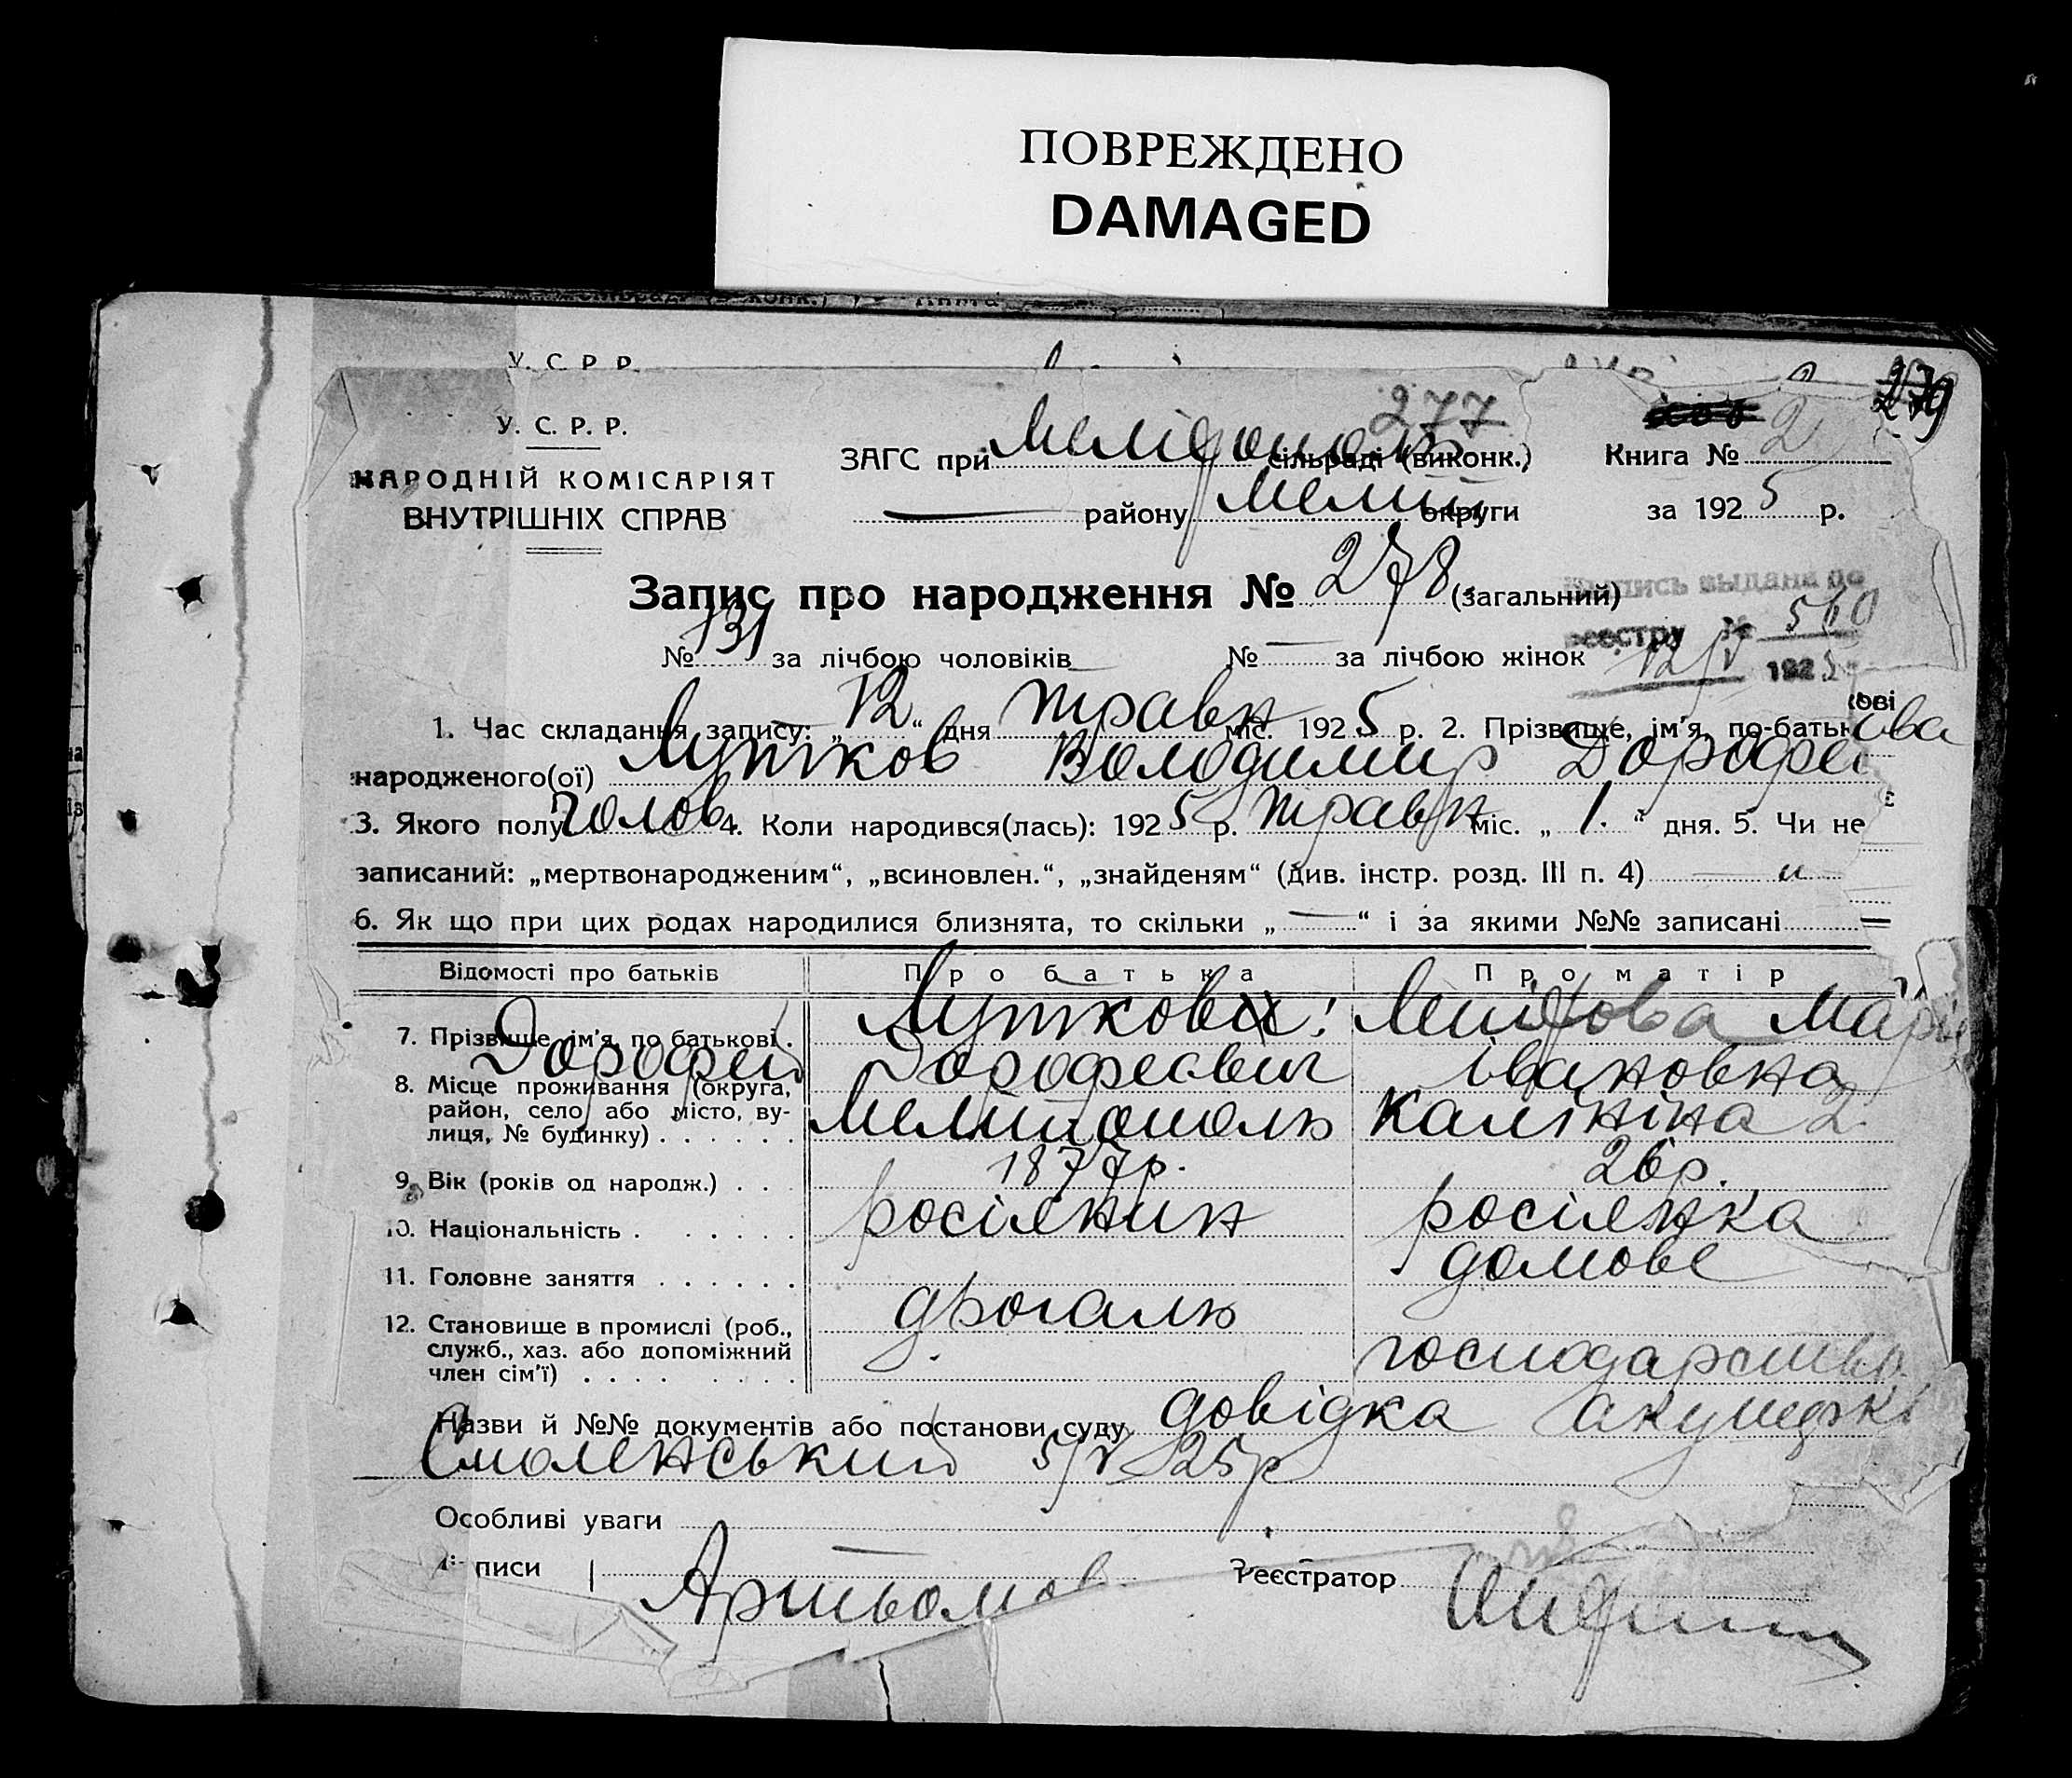 ПОВРЕЖДЕНО
DAMAGED
У. С. Р. Р.
279
277
У. С. Р. Р.
НАРОДНІЙ КОМІСАРІЯТ
ВНУТРІШНІХ СПРАВ
ЗАГС при Мелітополь сільраді (виконк.)
Книга № 2
— району Мелит округи
за 1925 р.
Запис про народження № 278 (загальний)
Выпись выдана по
реестру № 560
12/V 1925
№ 131 за лічбою чоловіків № — за лічбою жінок
1. Час складання запису: „ 12 “ дня травн міс. 1925 р. 2. Прізвище, ім'я, по-батькові
народженого(ої) Лутков Володимир Дорофеєва
3. Якого полу чолов 4. Коли народився(лась): 1925 р. травн міс. „ 1. “ дня. 5. Чи не
записаний: „мертвонародженим“, „всиновлен.“, „знайденям“ (див. інстр. розд. III п. 4)
6. Як що при цих родах народилися близнята, то скільки „ — “ і за якими №№ записані
Відомості про батьків Про батька Про матір
7. Прізвище ім'я, по батькові. Лутков Марія
Дорофей Дорофеєвич Івановна
8. Місце проживання (округа, район, село або місто, вулиця, № будинку) Мелитополь Калініна 2
9. Вік (років од народж.) 1877р. 26р.
10. Національність росіянин росіянка
11. Головне заняття домове
12. Становище в промислі (роб., служб., хаз. або допоміжний член сім'ї) дрогаль господарство
Назви й №№ документів або постанови суду довідка акушерки
Смоленський 5/V 25р
Особливі уваги —
писи Артьомов Реєстратор